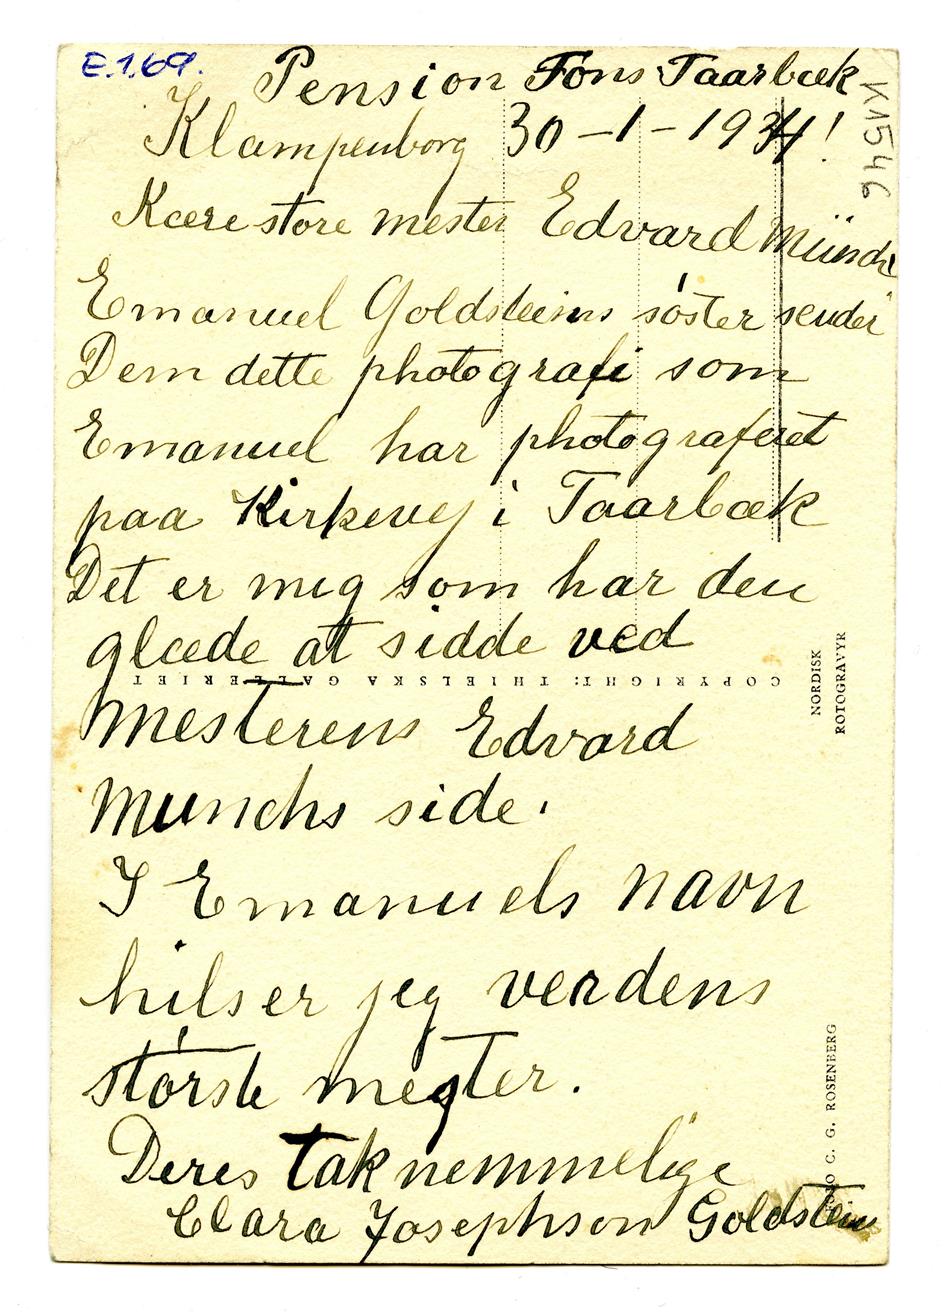 E.1.69.
Pension Fons Taarbæk
Klampenborg 30-1-1934!
K1546
Kære store mester Edvard Münch
Emanuel Goldsteins söster sender
Dem dette photografi som
Emanuel har photograferet
paa Kirkevej i Taarbæk
Det er mig som har den
glæde at sidde ved
COPYRIGHT: THIELSKA GALLERIET
NORDISK
ROTOGRAVYR
Mesterens Edvard
Munchs side.
I Emanuels navn
hilser jeg verdens
störste mester.
FOTO C. G. ROSENBERG
Deres taknemmelige
Clara Josephson Goldstein